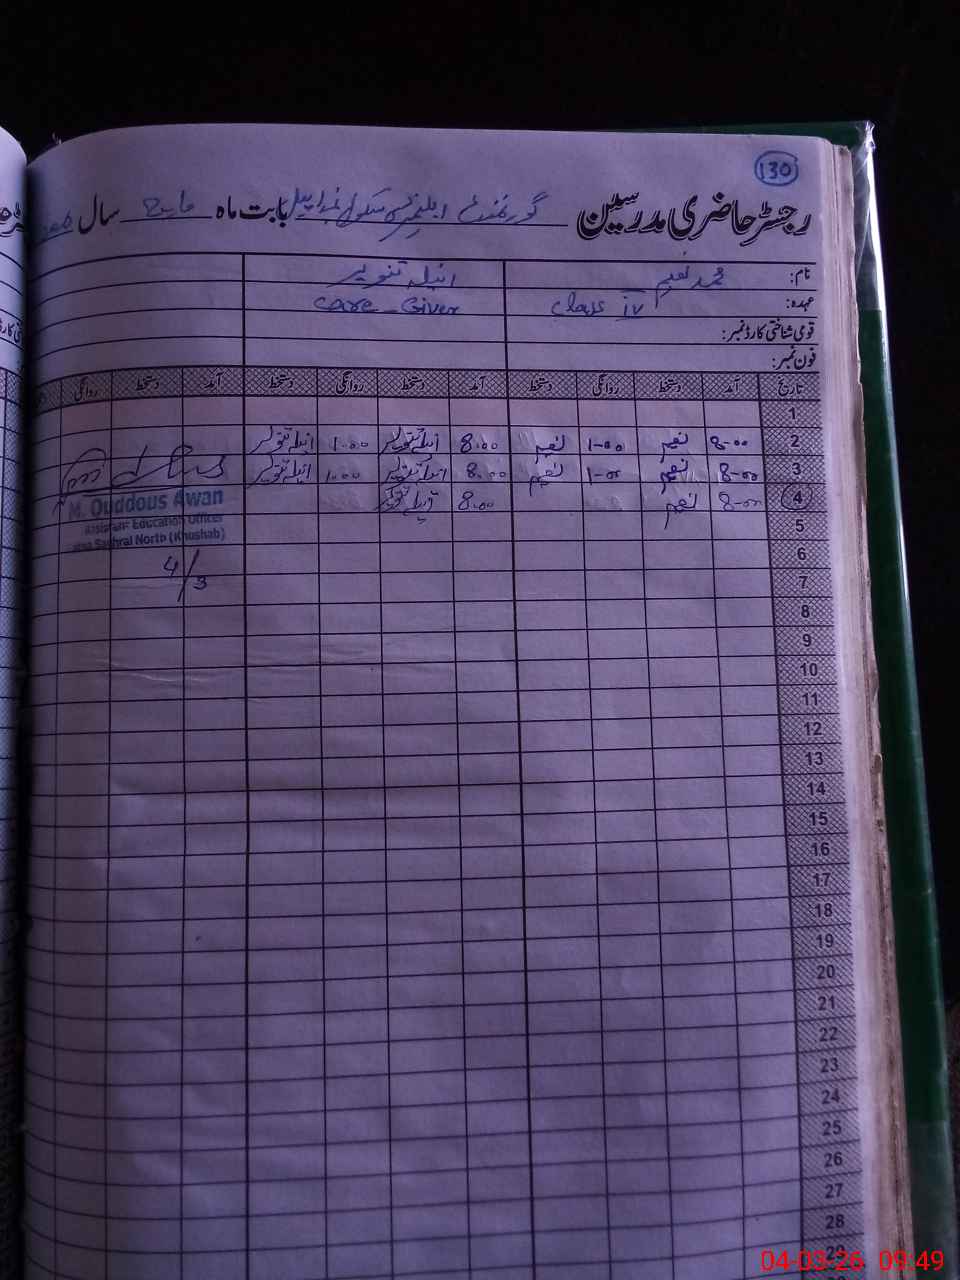 130
رجسٹر حاضری مدرسین گورنمنٹ ایلیمنٹری سکول بابت ماہ مارچ سال
نام: محمد نعیم انیلہ تنویر
عہدہ: Class iv Care-Giver
قومی شناختی کارڈ نمبر:
فون نمبر:
تاریخ آمد دستخط روانگی دستخط آمد دستخط روانگی دستخط آمد دستخط روانگی
1
2 8-00 نعیم 1-00 نعیم 8.00 انیلہ تنویر 1.00 انیلہ تنویر
3 8-00 نعیم 1-00 نعیم 8.00 انیلہ تنویر 1.00 انیلہ تنویر
4 8-00 نعیم 8.00 انیلہ تنویر
M. Quddous Awan
Assistant Education Officer
Sashral North (Khushab)
4/3
5
6
7
8
9
10
11
12
13
14
15
16
17
18
19
20
21
22
23
24
25
26
27
28
29
04-03-26 09:49